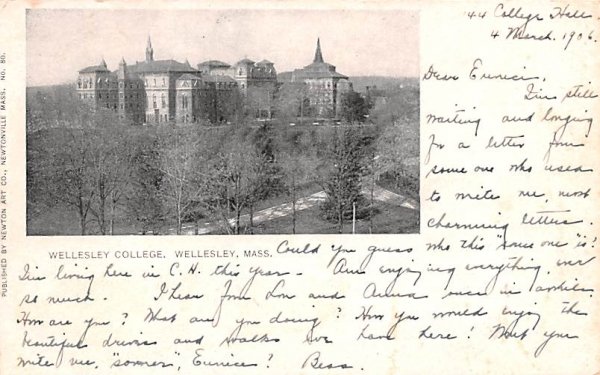 44 College Hall
4 March. 1906.
Dear Eunice,
I'm still
waiting and longing
for a letter from
some one who used
to write me, most
charming letters.
Could you guess who this "some one" is!
I'm living here in C. H. this year. Am enjoying everything, ever
so much. I hear from Lou and Anna once in awhile.
How are you? What are you doing? How you would enjoy the
beautiful drives and walks we have here! Won't you
write me, "sooner", Eunice? Bess.
WELLESLEY COLLEGE, WELLESLEY, MASS.
PUBLISHED BY NEWTON ART CO., NEWTONVILLE MASS. NO. 80.